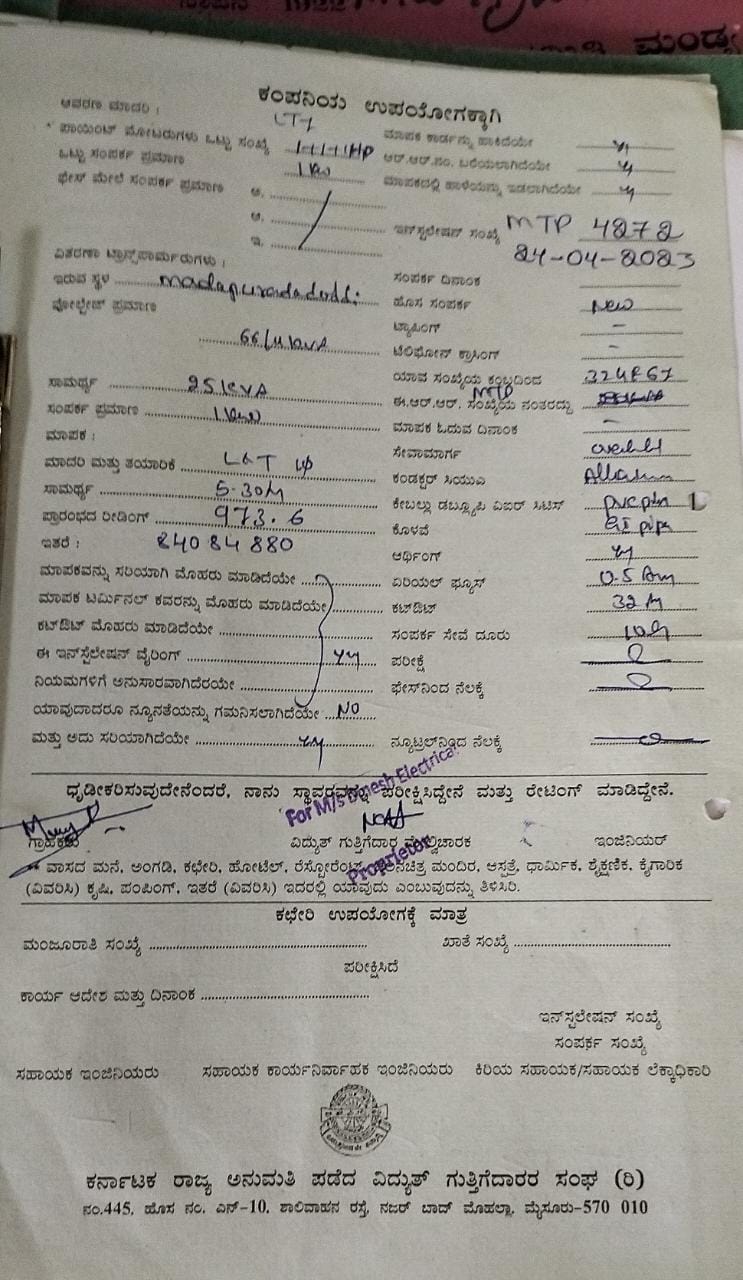 ಮಂಡ್ಯ
ಕಂಪನಿಯ ಉಪಯೋಗಕ್ಕಾಗಿ
ಆವರಣ ಮಾದರಿ :
ಪಾಯಿಂಟ್ ಮೋಟರುಗಳು ಒಟ್ಟು ಸಂಖ್ಯೆ
ಮಾಪಕ ಕಾರ್ಡನ್ನು ಹಾಕಿದೆಯೇ
ಒಟ್ಟು ಸಂಪರ್ಕ ಪ್ರಮಾಣ 1 kw ಆರ್.ಆರ್.ನಂ. ಬರೆಯಲಾಗಿದೆಯೇ
ಫೇಸ್ ಮೇಲೆ ಸಂಪರ್ಕ ಪ್ರಮಾಣ ಮಾಪಕದಲ್ಲಿ ಹಾಳೆಯನ್ನು ಇಡಲಾಗಿದೆಯೇ
ಇನ್‌ಸ್ಟಲೇಷನ್ ಸಂಖ್ಯೆ MTP 4272
24-04-2023
ವಿತರಣಾ ಟ್ರಾನ್ಸ್‌ಫಾರ್ಮರುಗಳು :
ಇರುವ ಸ್ಥಳ madapuradadoddi ಸಂಪರ್ಕ ದಿನಾಂಕ
ವೋಲ್ಟೇಜ್ ಪ್ರಮಾಣ ಹೊಸ ಸಂಪರ್ಕ New
ಟ್ಯಾಪಿಂಗ್ -
66/11 kva ಟೆಲಿಫೋನ್ ಕ್ರಾಸಿಂಗ್ -
ಸಾಮರ್ಥ್ಯ 25 kVA ಯಾವ ಸಂಖ್ಯೆಯ ಕಂಬದಿಂದ
ಸಂಪರ್ಕ ಪ್ರಮಾಣ 1 kw ಈ.ಆರ್.ಆರ್. ಸಂಖ್ಯೆಯ ನಂತರದ್ದು MTP
ಮಾಪಕ : ಮಾಪಕ ಓದುವ ದಿನಾಂಕ -
ಮಾದರಿ ಮತ್ತು ತಯಾರಿಕೆ L&T 1φ ಸೇವಾಮಾರ್ಗ
ಸಾಮರ್ಥ್ಯ 5-30A ಕಂಡಕ್ಟರ್ ಸಿಯುಎ
ಪ್ರಾರಂಭದ ರೀಡಿಂಗ್ 973.6 ಕೇಬಲ್ಲು ಡಬ್ಲ್ಯೂಪಿ ವಿಐರ್ ಸಿಟಿಸ್
ಇತರೆ : 84084880 ಕೊಳವೆ GI pipe
ಆರ್ಥಿಂಗ್
ಮಾಪಕವನ್ನು ಸರಿಯಾಗಿ ಮೊಹರು ಮಾಡಿದೆಯೇ ಏರಿಯಲ್ ಫ್ಯೂಸ್
ಮಾಪಕ ಟರ್ಮಿನಲ್ ಕವರನ್ನು ಮೊಹರು ಮಾಡಿದೆಯೇ ಕಟ್‌ಔಟ್ 32 A
ಕಟ್‌ಔಟ್ ಮೊಹರು ಮಾಡಿದೆಯೇ ಸಂಪರ್ಕ ಸೇವೆ ದೂರು
ಈ ಇನ್‌ಸ್ಟೆಲೇಷನ್ ವೈರಿಂಗ್ ಪರೀಕ್ಷೆ
ನಿಯಮಗಳಿಗೆ ಅನುಸಾರವಾಗಿದೆರೆಯೇ ಫೇಸ್‌ನಿಂದ ನೆಲಕ್ಕೆ
ಯಾವುದಾದರೂ ನ್ಯೂನತೆಯನ್ನು ಗಮನಿಸಲಾಗಿದೆಯೇ NO
ಮತ್ತು ಅದು ಸರಿಯಾಗಿದೆಯೇ ನ್ಯೂಟ್ರಲ್‌ನಿಂದ ನೆಲಕ್ಕೆ
ಧೃಡೀಕರಿಸುವುದೇನೆಂದರೆ, ನಾನು ಸ್ಥಾವರವನ್ನು ಪರೀಕ್ಷಿಸಿದ್ದೇನೆ ಮತ್ತು ರೇಟಿಂಗ್ ಮಾಡಿದ್ದೇನೆ.
For M/s Dinesh Electrical
ಗ್ರಾಹಕರು ವಿದ್ಯುತ್ ಗುತ್ತಿಗೆದಾರ ಮೇಲ್ವಿಚಾರಕ ಇಂಜಿನಿಯರ್
Proprietor
** ವಾಸದ ಮನೆ, ಅಂಗಡಿ, ಕಛೇರಿ, ಹೋಟೆಲ್, ರೆಸ್ಟೋರೆಂಟ್, ಚಲನಚಿತ್ರ ಮಂದಿರ, ಆಸ್ಪತ್ರೆ, ಧಾರ್ಮಿಕ, ಶೈಕ್ಷಣಿಕ, ಕೈಗಾರಿಕ
(ವಿವರಿಸಿ) ಕೃಷಿ, ಪಂಪಿಂಗ್, ಇತರೆ (ವಿವರಿಸಿ) ಇದರಲ್ಲಿ ಯಾವುದು ಎಂಬುವುದನ್ನು ತಿಳಿಸಿರಿ.
ಕಛೇರಿ ಉಪಯೋಗಕ್ಕೆ ಮಾತ್ರ
ಮಂಜೂರಾತಿ ಸಂಖ್ಯೆ ಖಾತೆ ಸಂಖ್ಯೆ
ಪರೀಕ್ಷಿಸಿದೆ
ಕಾರ್ಯ ಆದೇಶ ಮತ್ತು ದಿನಾಂಕ
ಇನ್‌ಸ್ಟಲೇಷನ್ ಸಂಖ್ಯೆ
ಸಂಪರ್ಕ ಸಂಖ್ಯೆ
ಸಹಾಯಕ ಇಂಜಿನಿಯರು ಸಹಾಯಕ ಕಾರ್ಯನಿರ್ವಾಹಕ ಇಂಜಿನಿಯರು ಕಿರಿಯ ಸಹಾಯಕ/ಸಹಾಯಕ ಲೆಕ್ಕಾಧಿಕಾರಿ
ಕರ್ನಾಟಕ ರಾಜ್ಯ ಅನುಮತಿ ಪಡೆದ ವಿದ್ಯುತ್ ಗುತ್ತಿಗೆದಾರರ ಸಂಘ (ರಿ)
ನಂ.445, ಹೊಸ ನಂ. ಎನ್-10, ಶಾಲಿವಾಹನ ರಸ್ತೆ, ನಜರ್ ಬಾದ್ ಮೊಹಲ್ಲಾ, ಮೈಸೂರು-570 010